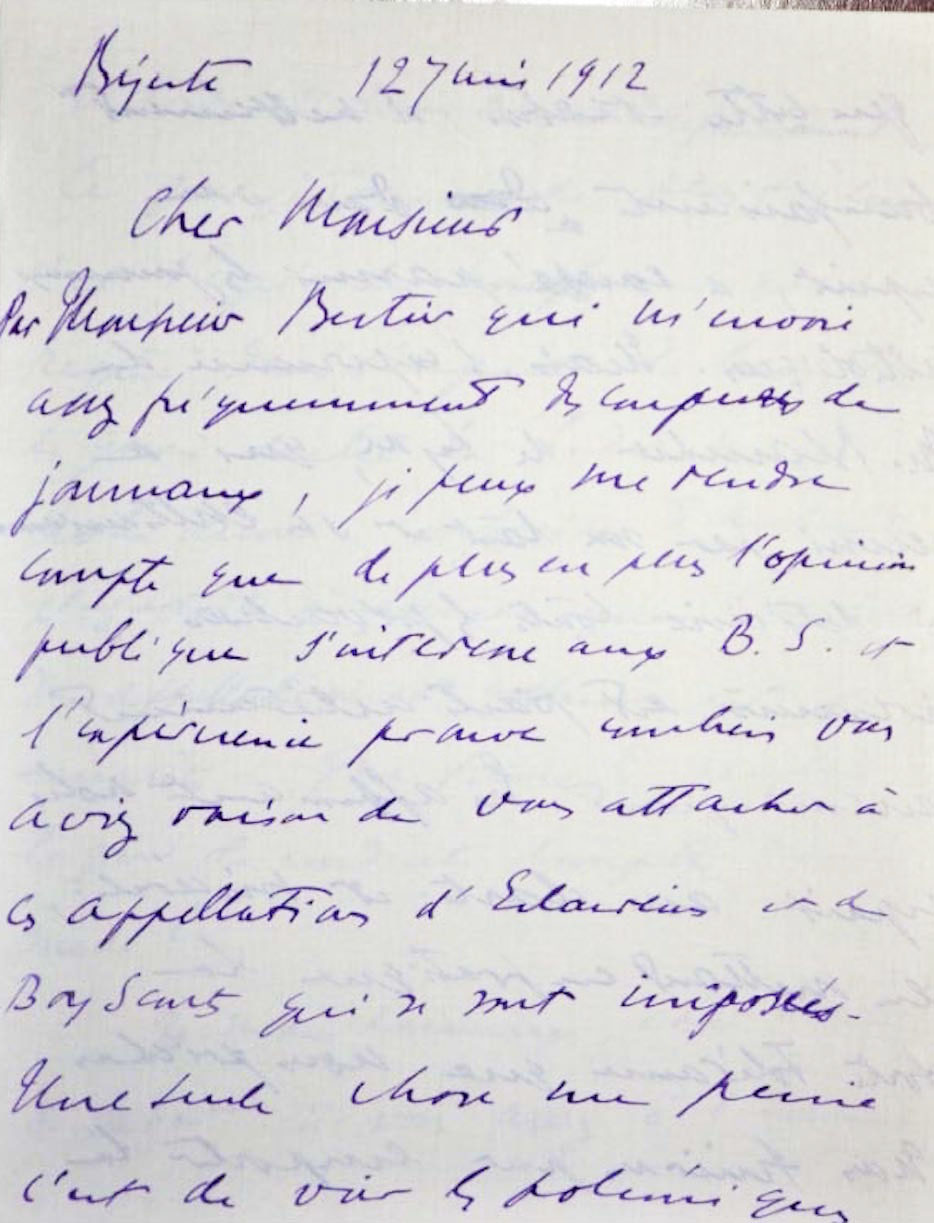 Bizerte 12 Juin 1912
Cher Monsieur
Par Monsieur Bertier qui m'envoie
assez fréquemment des coupures de
journaux, je peux me rendre
compte que de plus en plus l'opinion
publique s'intéresse aux B. S. et
l'expérience prouve combien vous
aviez raison de vous attacher à
ces appellations d'Eclaireurs et de
Boy Scouts qui se sont imposées.
Une seule chose me peine
c'est de voir les polémiques